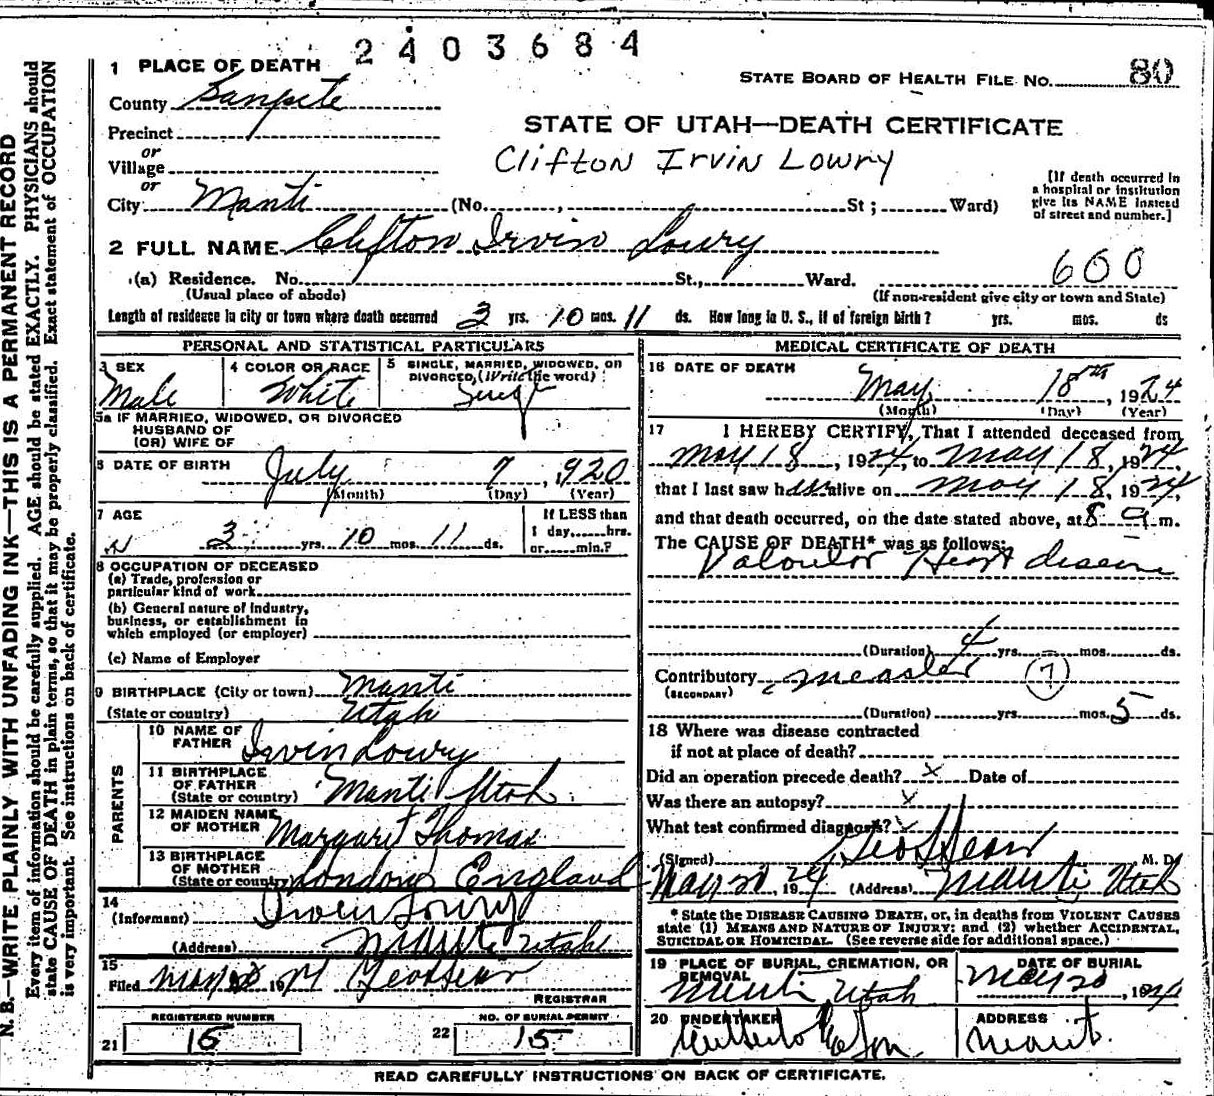 2403684
1 PLACE OF DEATH
STATE BOARD OF HEALTH FILE NO. 80
County Sanpete
Precinct
STATE OF UTAH—DEATH CERTIFICATE
or
Village
Clifton Irvin Lowry
or
City Manti (No. , St; Ward)
[If death occurred in
a hospital or institution
give its NAME instead
of street and number.]
2 FULL NAME Clifton Irvin Lowry
600
(a) Residence. No. St., Ward.
(Usual place of abode) (If non-resident give city or town and State)
Length of residence in city or town where death occurred 3 yrs. 10 mos. 11 ds. How long in U. S., if of foreign birth? yrs. mos. ds
PERSONAL AND STATISTICAL PARTICULARS
3 SEX
Male
4 COLOR OR RACE
White
5 SINGLE, MARRIED, WIDOWED, OR
DIVORCED, (Write the word)
5a IF MARRIED, WIDOWED, OR DIVORCED
HUSBAND OF
(OR) WIFE OF
6 DATE OF BIRTH July 7, 1920
(Month) (Day) (Year)
7 AGE
3 yrs. 10 mos. 11 ds.
If LESS than
1 day......hrs.
or......min.?
8 OCCUPATION OF DECEASED
(a) Trade, profession or
particular kind of work
(b) General nature of industry,
business, or establishment in
which employed (or employer)
(c) Name of Employer
9 BIRTHPLACE (City or town) Manti
(State or country) Utah
PARENTS
10 NAME OF
FATHER Irvin Lowry
11 BIRTHPLACE
OF FATHER
(State or country) Manti Utah.
12 MAIDEN NAME
OF MOTHER Margaret Thomas
13 BIRTHPLACE
OF MOTHER
(State or country) London England
14
(Informant) Lowry
(Address) Manti Utah
15
Filed May 20 1924 Geo
REGISTRAR
REGISTERED NUMBER
21 15
NO. OF BURIAL PERMIT
22 15
MEDICAL CERTIFICATE OF DEATH
16 DATE OF DEATH
May 18th, 1924
(Month) (Day) (Year)
17 I HEREBY CERTIFY, That I attended deceased from
May 18, 1924, to May 18, 1924,
that I last saw h alive on May 18, 1924,
and that death occurred, on the date stated above, at 8 m.
The CAUSE OF DEATH* was as follows:
Heart disease
(Duration) 4 yrs. mos. ds.
Contributory measles 7
(SECONDARY)
(Duration) yrs. mos. 5 ds.
18 Where was disease contracted
if not at place of death?
Did an operation precede death? x Date of
Was there an autopsy? x
What test confirmed diagnosis?
(Signed) Geo M. D.
May 20, 1924 (Address) Manti Utah
* State the DISEASE CAUSING DEATH, or, in deaths from VIOLENT CAUSES
state (1) MEANS AND NATURE OF INJURY; and (2) whether ACCIDENTAL,
SUICIDAL OR HOMICIDAL. (See reverse side for additional space.)
19 PLACE OF BURIAL, CREMATION, OR
REMOVAL
Manti Utah
DATE OF BURIAL
May 20, 1924
20 UNDERTAKER
ADDRESS
READ CAREFULLY INSTRUCTIONS ON BACK OF CERTIFICATE.
N. B.—WRITE PLAINLY WITH UNFADING INK—THIS IS A PERMANENT RECORD
Every item of information should be carefully supplied. AGE should be stated EXACTLY. PHYSICIANS should
state CAUSE OF DEATH in plain terms, so that it may be properly classified. Exact statement of OCCUPATION
is very important. See instructions on back of certificate.